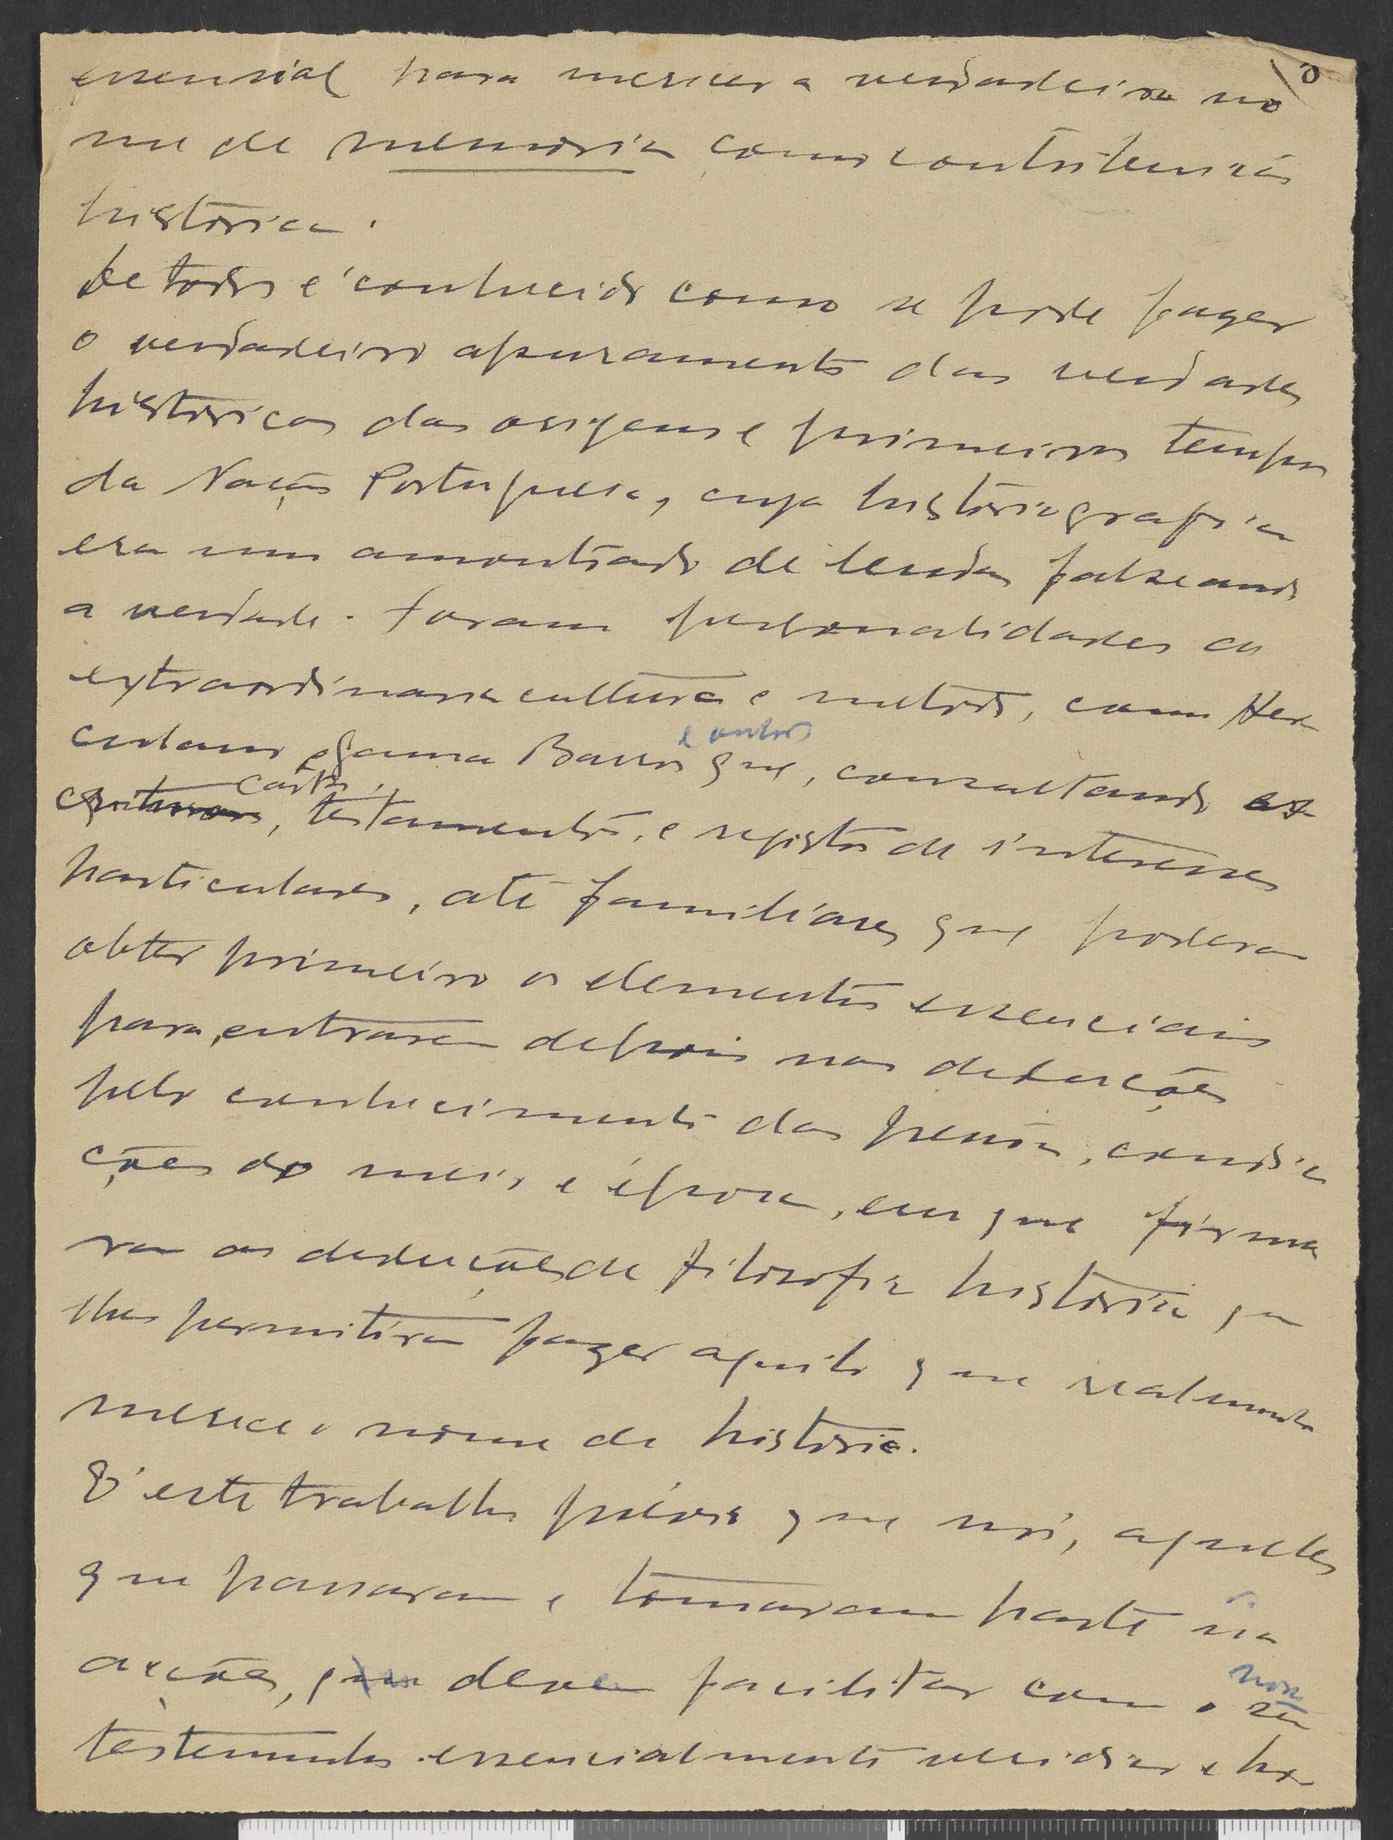 essencial para merecer a verdadeiro no
me de memoria como contribuição
historica.
De todos é conhecido como se pode fazer
o verdadeiro apuramento das verdades
historicas das origens e primeiros tempos
da Nação Portuguesa, cuja historiografia
era um amontoado de lendas falseando
a verdade. Foram personalidades de
extraordinaria cultura e metodo, como Her
culano e Gama Barros e outros que, consultando es
crituras, cartas, testamentos, e registos de interesses
particulares, até familiares que poderam
obter primeiro os elementos essenciais
para, entrarem depois nas deduções
pelo conhecimento das pessoas, condi
ções do meio, e época, em que firma
ram as deduções de filosofia historia que
lhes permitiram fazer aquilo que realmente
merece o nome de historia.
É este trabalho previo que nós, aqueles
que passaram e tomaram parte na
acções, devem facilitar com o nosso seu
testemunho essencialmente veridico e ho